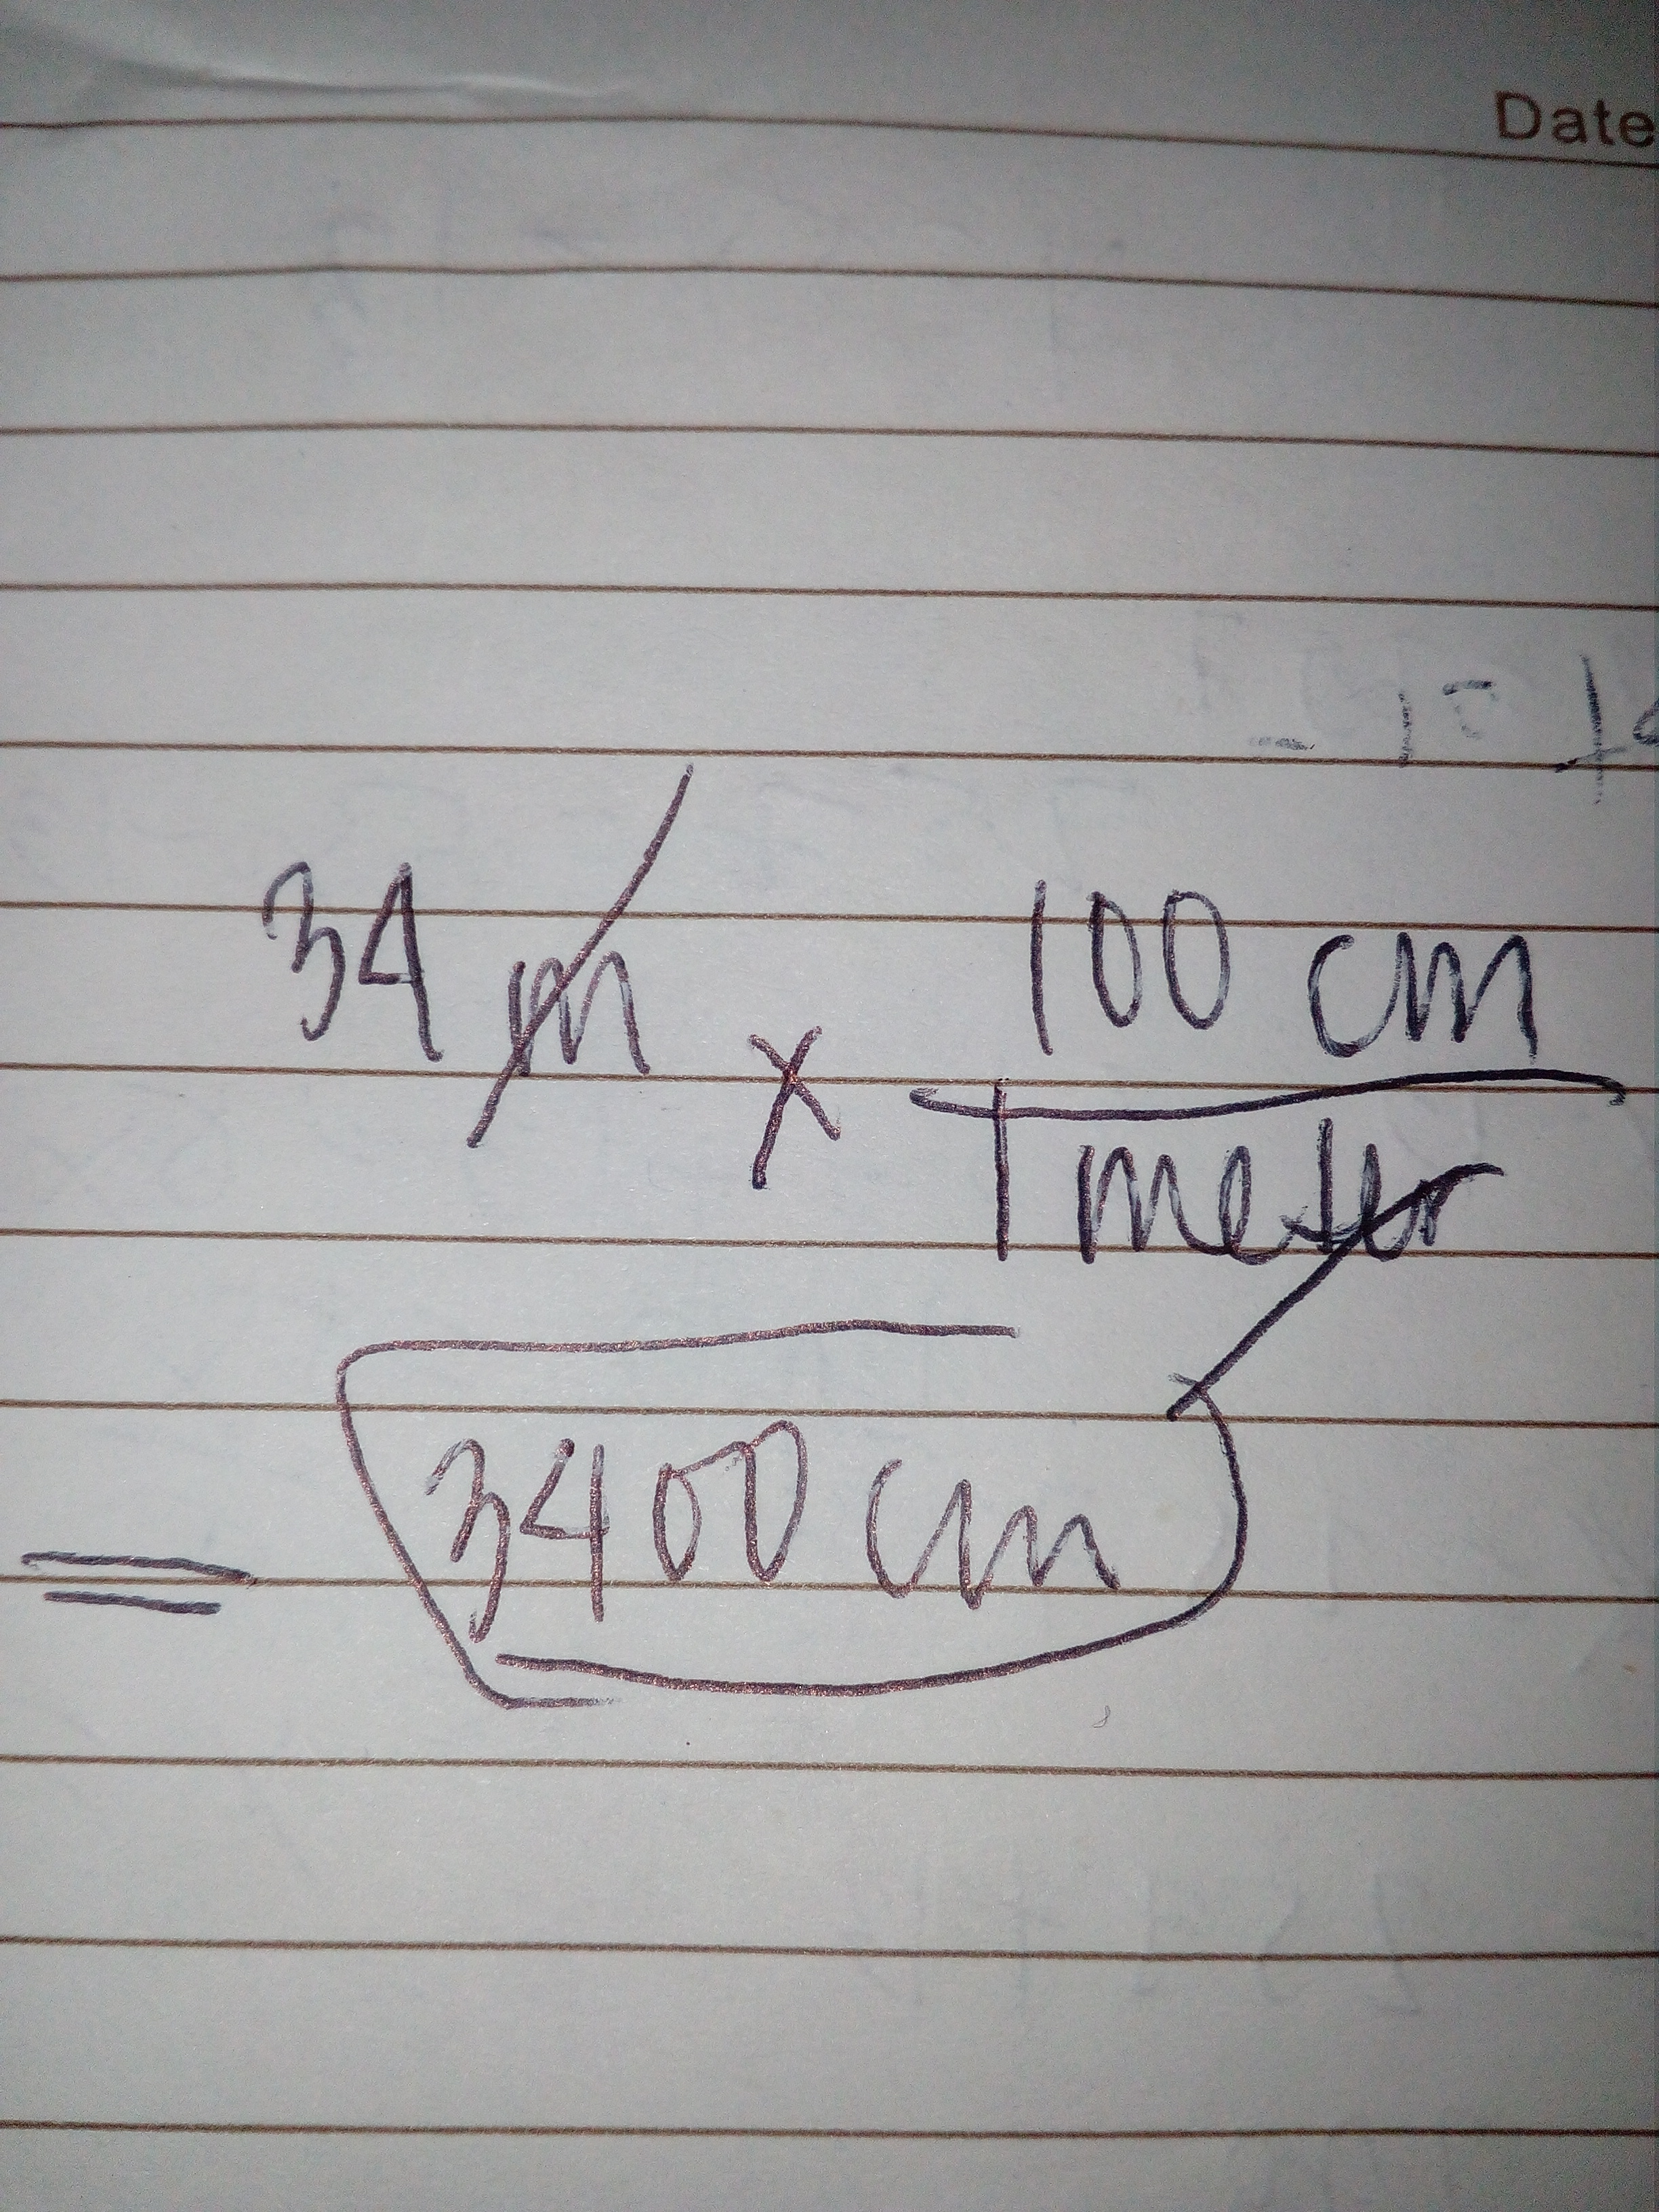 Date
34 m x 100 cm
1 meter
= 3400 cm